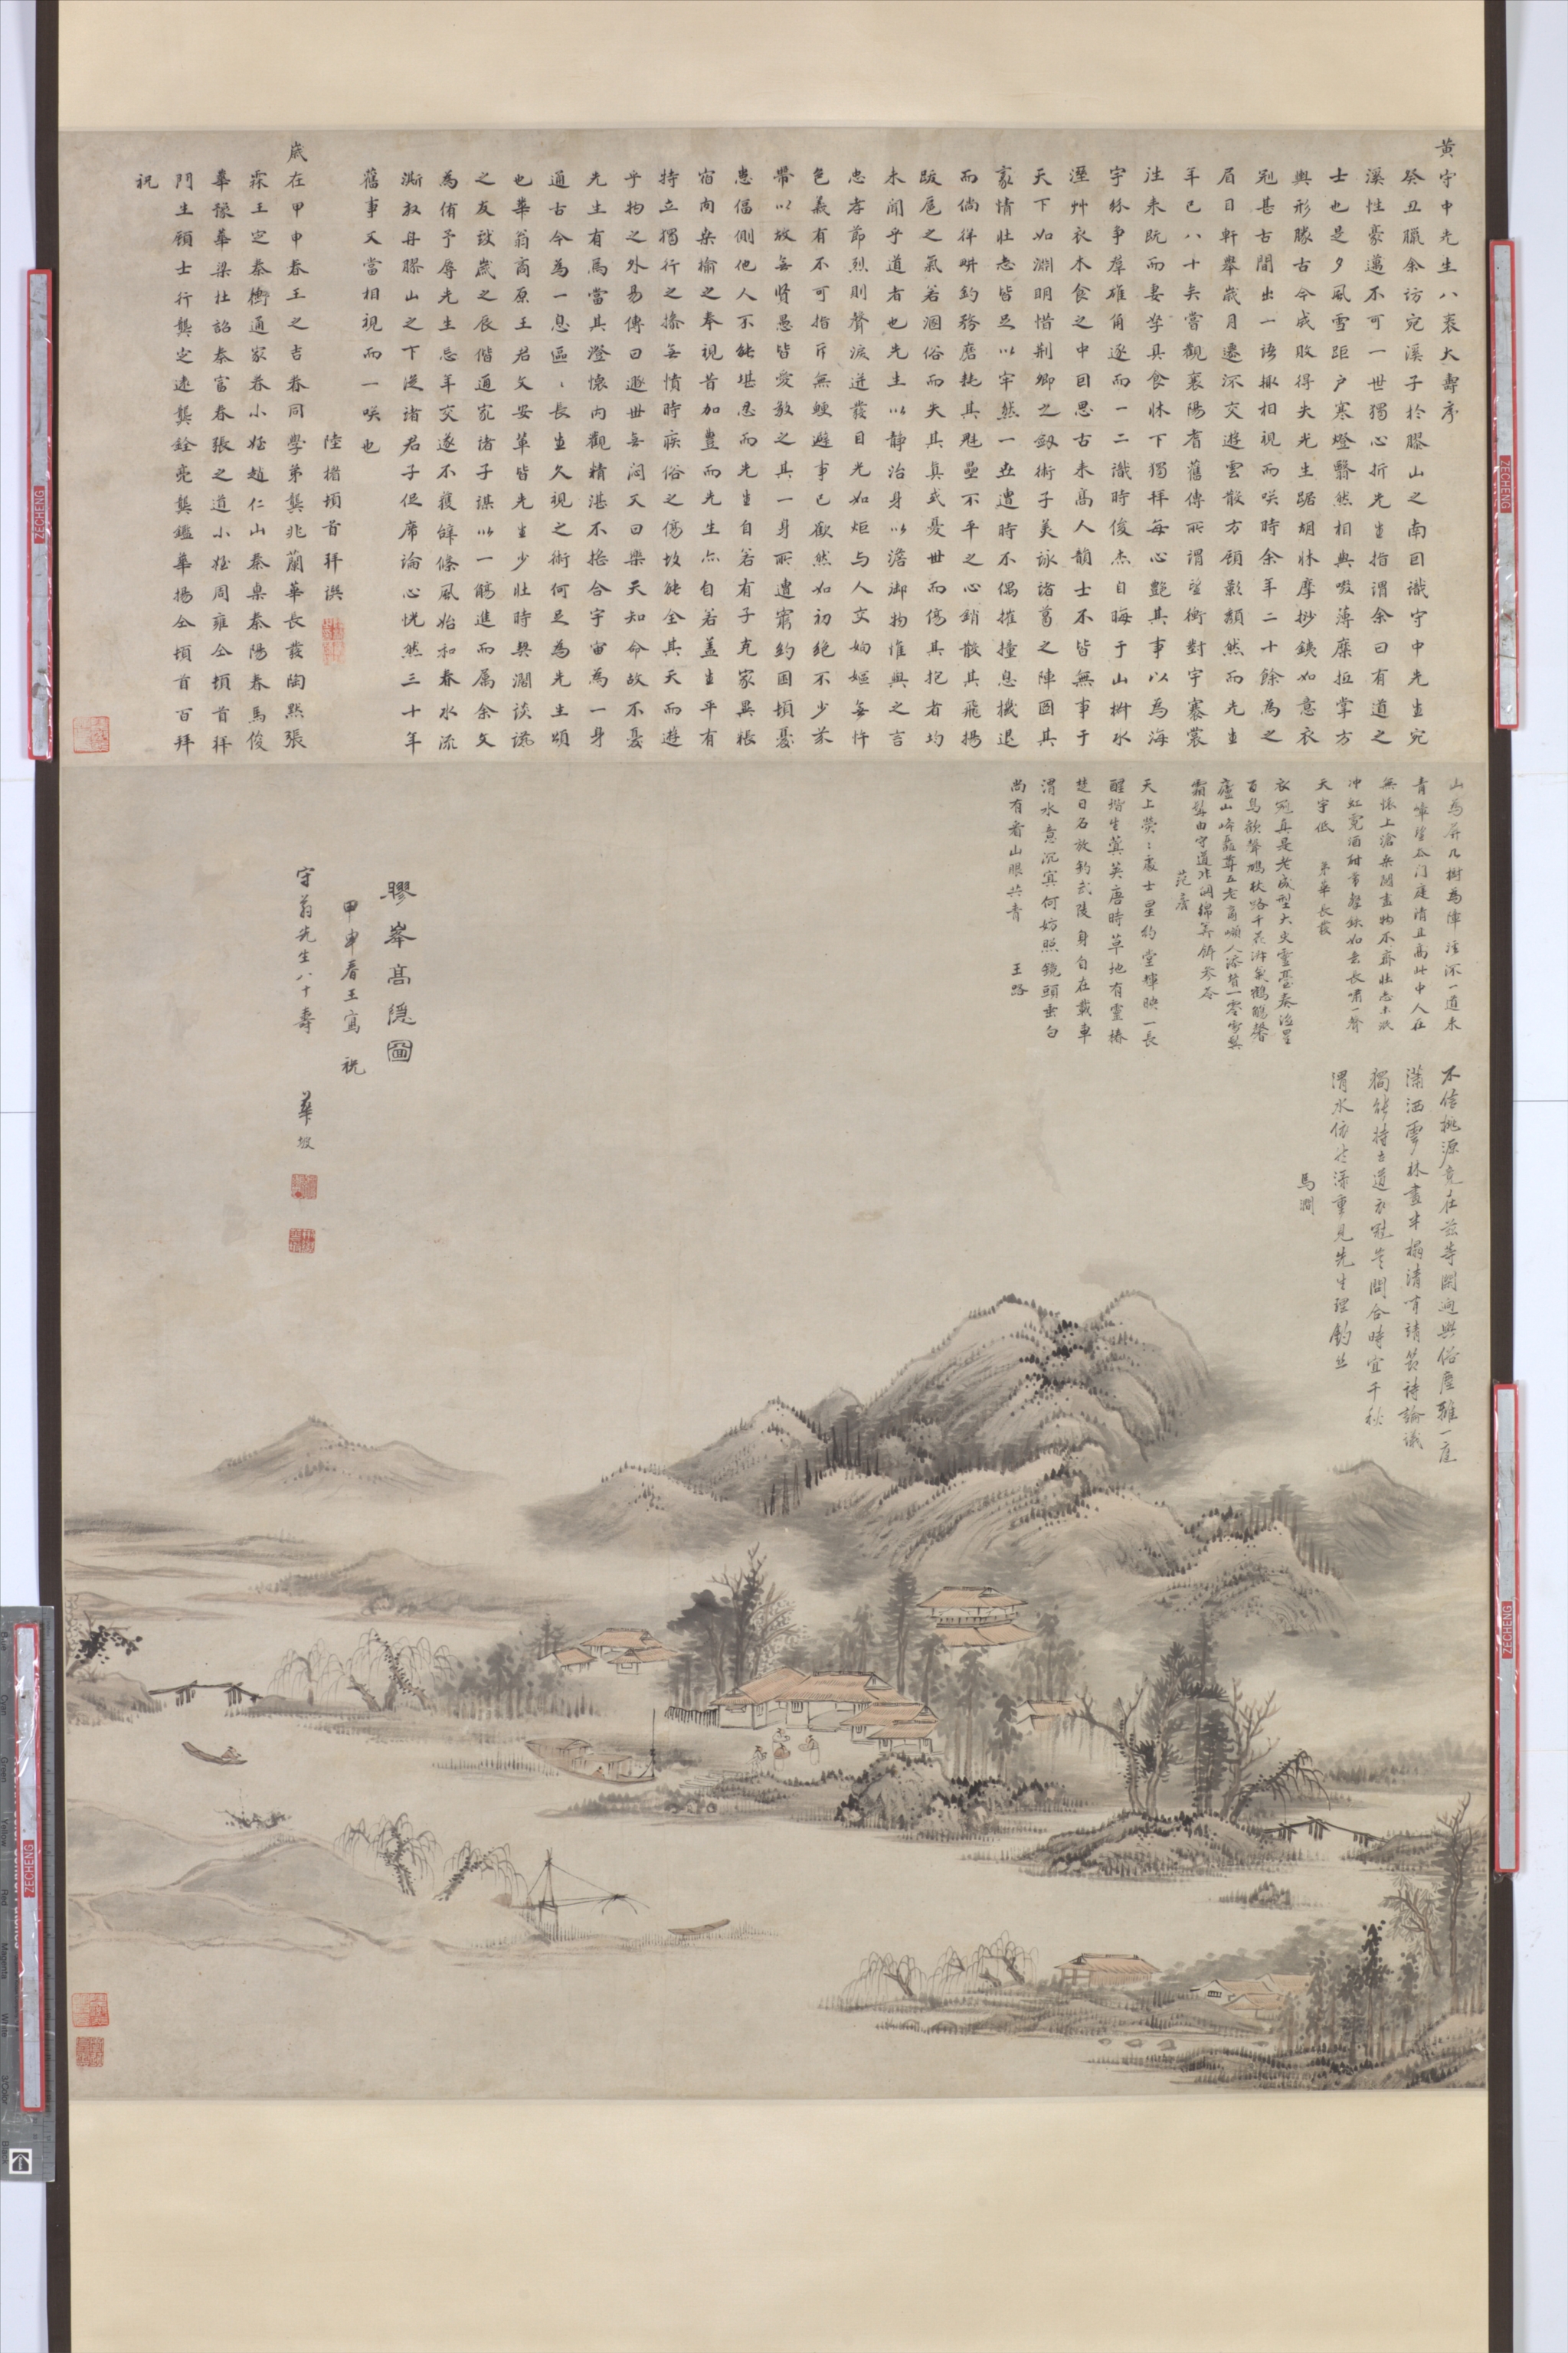 黃守中先生八袠大壽序
癸丑臘余訪宛溪子於膠山之南因識守中先生宛
溪性豪邁不可一世獨心折先生指謂余曰有道之
士也是夕風雪距户寒燈翳然相與啜薄糜抵掌方
輿形勝古今成敗得失先生踞胡牀摩挲鐵如意衣
冠甚古間出一語輒相視而咲時余年二十餘為之
眉目軒舉歲月遷流交遊雲散方顧影頹然而先生
年已八十矣嘗觀襄陽耆舊傳所謂望衡對宇褰裳
注来既而妻孥具食牀下獨拜每心艷其事以為海
宇紛争羣雄角逐而一二識時俊杰自晦于山樹水
溼艸衣木食之中因思古未高人韻士不皆無事于
天下如淵明惜荆卿之劔術子美詠諸葛之陣圖其
豪情壮志皆足以牢然一丗遭時不偶摧撞息機退
而倘佯畊釣務磨耗其魁壘不平之心銷散其飛揚
跋扈之氣若溷俗而失其真或憂世而傷其抱者均
未聞乎道者也先生以靜治身以澹御物惟與之言
忠孝節烈則聲淚迸發目光如炬与人交姁嫗無忤
色義有不可指斥無經避事已歡然如初絶不少芥
帶以故無賢愚皆愛敬之其一身所遭窮約困頓憂
患偪側他人不能堪忍而先生自若有子克家異粻
宿肉桒榆之奉視昔加豊而先生亦自若蓋生平有
持立獨行之操無憤時疾俗之傷故能全其天而遊
乎物之外易傳曰遯世無悶又曰樂天知命故不憂
先生有焉當其澄懷内觀精湛不摇合宇宙為一身
通古今為一息區々長生久視之術何足為先生頌
也華翁商原王君文安革皆先生少壮時與濶談説
之友玆歲之辰偕通家諸子謀以一觴進而属余文
為侑予辱先生忘年交遂不獲辭條風始和春水流
澌放舟膠山之下從諸君子促席論心恍然三十年
舊事又當相視而一咲也
陸楷頓首拜譔
歲在甲申春王之吉眷同學弟龔兆蘭華長發陶㸃張
霖王定秦衝通家眷小姪趙仁山秦臬秦陽春馬俊
華豫華梁杜詔秦富春張之道小姪周雍仝頓首拜
門生顧士行龔定遠龔銓亮龔鑑華揚仝頓首百拜
祝
山為屏几樹為障注流一道来
青嶂望衣門庭清且高此中人在
無懷上滄桒閱盡物不齊壮志未泯
冲虹霓酒酣常擊鉄如意長嘯一聲
天宇低 弟華長發
衣冠真是老成型大史靈臺奏渔星
百鳥歡聲鳩杖路千花游氣鶴觴馨
廬山峰矗尊五老商嶺人添皆一零雪與
霜髯由守道非関綿笑餌参苓
范房
天上熒々處士星約堂輝映一長
醒堦生蓂莢唐時草地有靈椿
楚日石放釣武陵身自在載車
渭水意沉冥何妨照鏡頭垂白
尚有看山眼共青 王路
不信桃源竟在兹等閒迥與俗塵離一庭
瀟洒雲林畫半榻清才靖節詩論議
獨能持古道衣冠豈問合時宜千秋
渭水依然深重見先生理釣絲
馬澗
膠峯高隱圖
甲申春王寫祝
守翁先生八十壽 華坡
ZECHENG
ZECHENG
ZECHENG
ZECHENG
Cyan
Green
Yellow
Red
Magenta
White
3/Color
Black